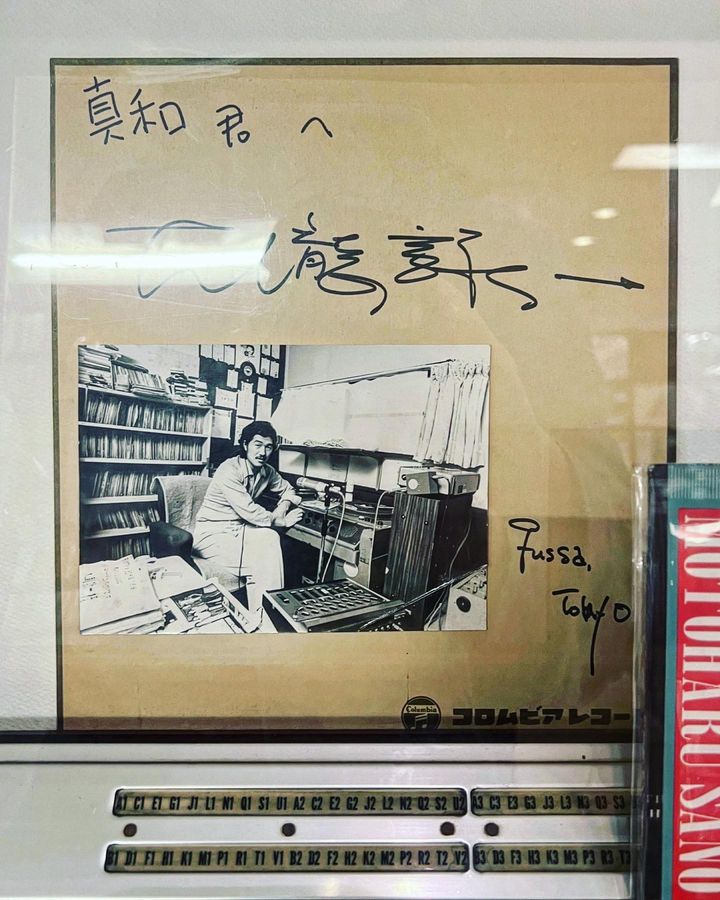 真和君へ
大瀧詠一
Fussa,
Tokyo
Columbia
コロムビアレコー
MOTOHARU SANO
A1 C1 E1 G1 J1 L1 N1 Q1 S1 U1 A2 C2 E2 G2 J2 L2 N2 Q2 S2 U2 A3 C3 E3 G3 J3 L3 N3 Q3 S3
B1 D1 F1 H1 K1 M1 P1 R1 T1 V1 B2 D2 F2 H2 K2 M2 P2 R2 T2 V2 B3 D3 F3 H3 K3 M3 P3 R3 T3